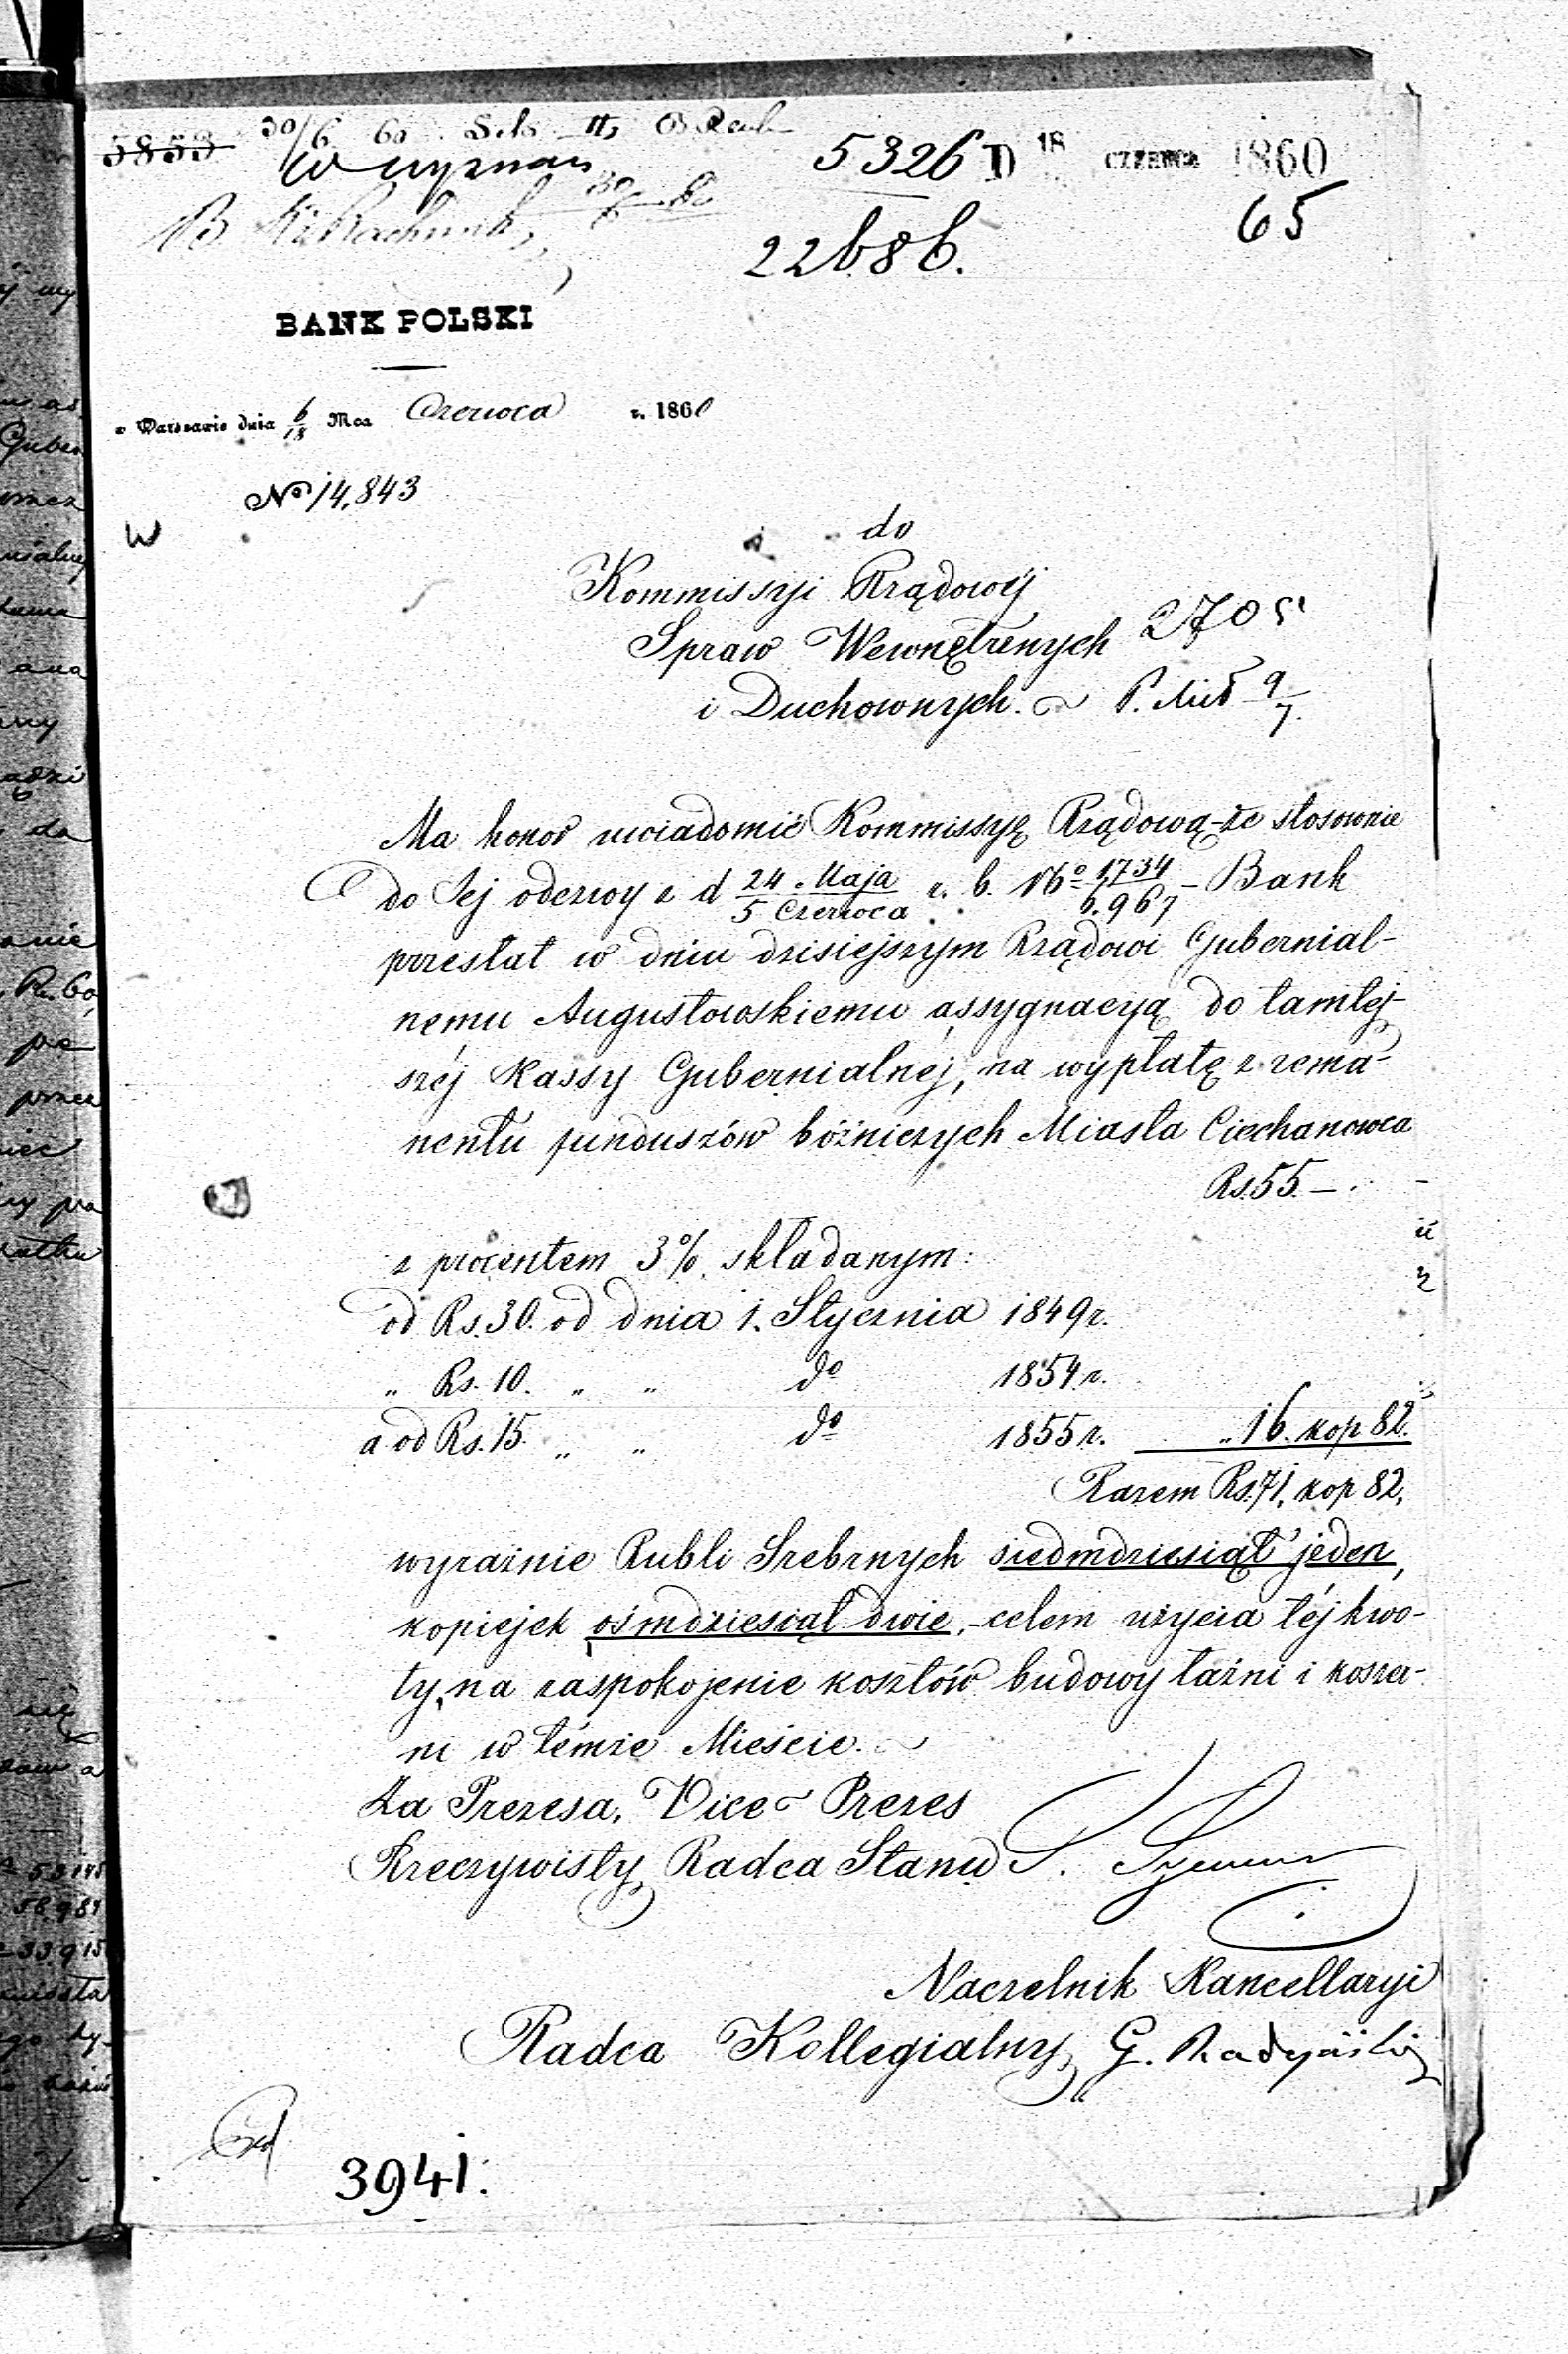 5853 30/6 60
5326 D 18 CZERWCA 1860
65
22686.
BANK POLSKI
w Warszawie dnia 6/18 Mca Czerwca r. 1860
No 14,843
W
do
Kommissyi Rządowéj
Spraw Wewnętrznych 2705
i Duchownych. 9/7.
Ma honor uwiadomić Kommissyę Rządową że stosownie
do Jej odezwy z d 24 Maja / 5 Czerwca r. b. No 1734 / 6.967 – Bank
przesłał w dniu dzisiejszym Rządowi Gubernial-
nemu Augustowskiemu assygnacyą do tamtej-
széj Kassy Gubernialnéj, na wypłatę z rema-
nentu funduszów bóżniczych Miasta Ciechanowca
Rs. 55. –.
z procentem 3% składanym:
od Rs. 30. od dnia 1. Stycznia 1849 r.
„ Rs. 10. „ „ do 1854 r.
a od Rs. 15. „ „ do 1855 r. „ 16. kop 82.
Razem Rs. 71. kop 82.
wyraźnie Rubli Srebrnych siedmdziesiąt jeden,
kopiejek ośmdziesiąt dwie, – celem użycia téj kwo-
ty, na zaspokojenie kosztów budowy łaźni i koszer-
ni w témże Mieście.
Za Prezesa, Vice Prezes
Rzeczywisty Radca Stanu
Naczelnik Kancellaryi
Radca Kollegialny G.
3941.